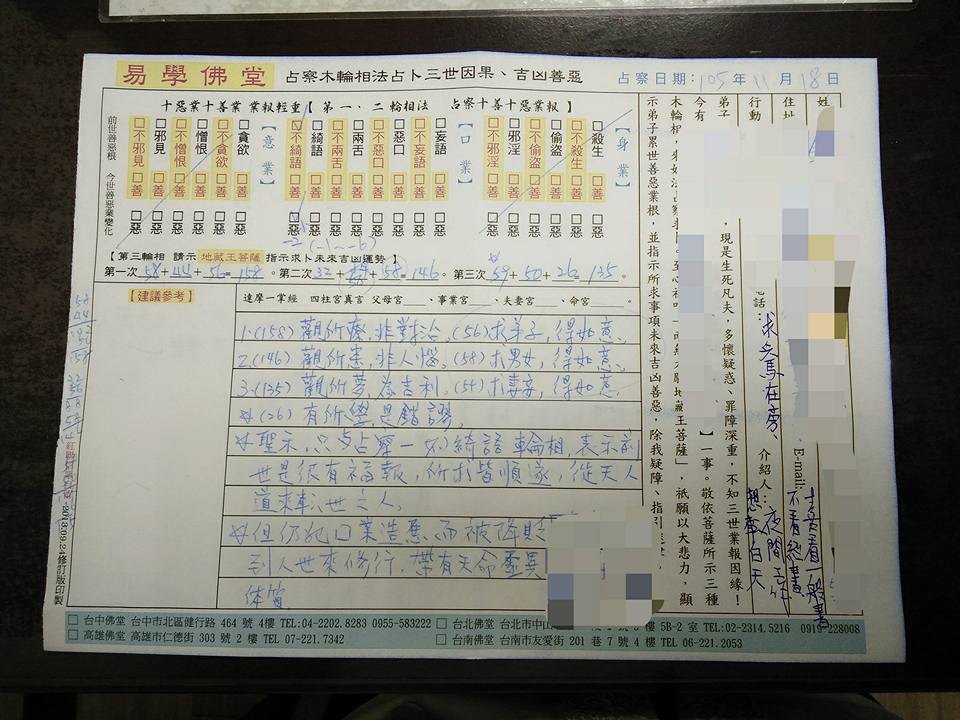 易學佛堂 占察木輪相法占卜三世因果、吉凶善惡 占察日期:105年11月18日
十惡業十善業 業報輕重【 第一、二輪相法 占察十善十惡業報 】
前世善惡根 今世善惡業變化
【身業】
□殺生 □惡
□不殺生 □善 □惡
□偷盜 □惡
□不偷盜 □善 □惡
□邪淫 □惡
□不邪淫 □善 □惡
【口業】
□妄語 □惡
□不妄語 □善 □惡
□惡口 □惡
□不惡口 □善 □惡
□兩舌 □惡
□不兩舌 □善 □惡
□綺語 □惡
□不綺語 □善 □惡
-2 (-1~-6)
【意業】
□貪欲 □惡
□不貪欲 □善 □惡
□憎恨 □惡
□不憎恨 □善 □惡
□邪見 □惡
□不邪見 □善 □惡
【 第三輪相 請示 地藏王菩薩 指示求卜未來吉凶運勢 】
第一次 58+44+56=158。第二次 32+ 58 146。第三次 59+50+26 135。
【建議參考】
達摩一掌經 四柱宮真言 父母宮 、事業宮 、夫妻宮 、命宮 。
1.(158) 觀所療,非對治,(56)求弟子,得如意、
2.(146) 觀所患,非人惱,(58)求男女,得如意、
3.(135) 觀所夢,為吉利,(59)求妻妾,得如意、
(26) 有所學,是錯謬、
聖示,只占察一 不綺語輪相,表示前
世是很有福報,所求皆順遂,從天人
道來轉世之人、
但仍犯口業造惡,而被降
到人世來修行,帶有天命靈異
体質
姓
住址
行動
弟子 ,現是生死凡夫,多懷疑惑、罪障深重,不知三世業報因緣!
今有 】一事。敬依菩薩所示三種
木輪相 地藏王菩薩」,祇願以大悲力,顯
示弟子累世善惡業根,並指示所求事項未來吉凶善惡,除我疑障、指引
電話:
E-mail:
介紹人:
不看經書
夜間
白天
2013.09.24修訂版印製
□ 台中佛堂 台中市北區健行路 464 號 4樓 TEL:04-2202.8283 0955-583222
□ 高雄佛堂 高雄市仁德街 303 號 2 樓 TEL 07-221.7342
□ 台北佛堂 台北市中山 號 5B-2 室 TEL:02-2314.5216 0919-228008
□ 台南佛堂 台南市友愛街 201 巷 7 號 4 樓 TEL 06-221.2053